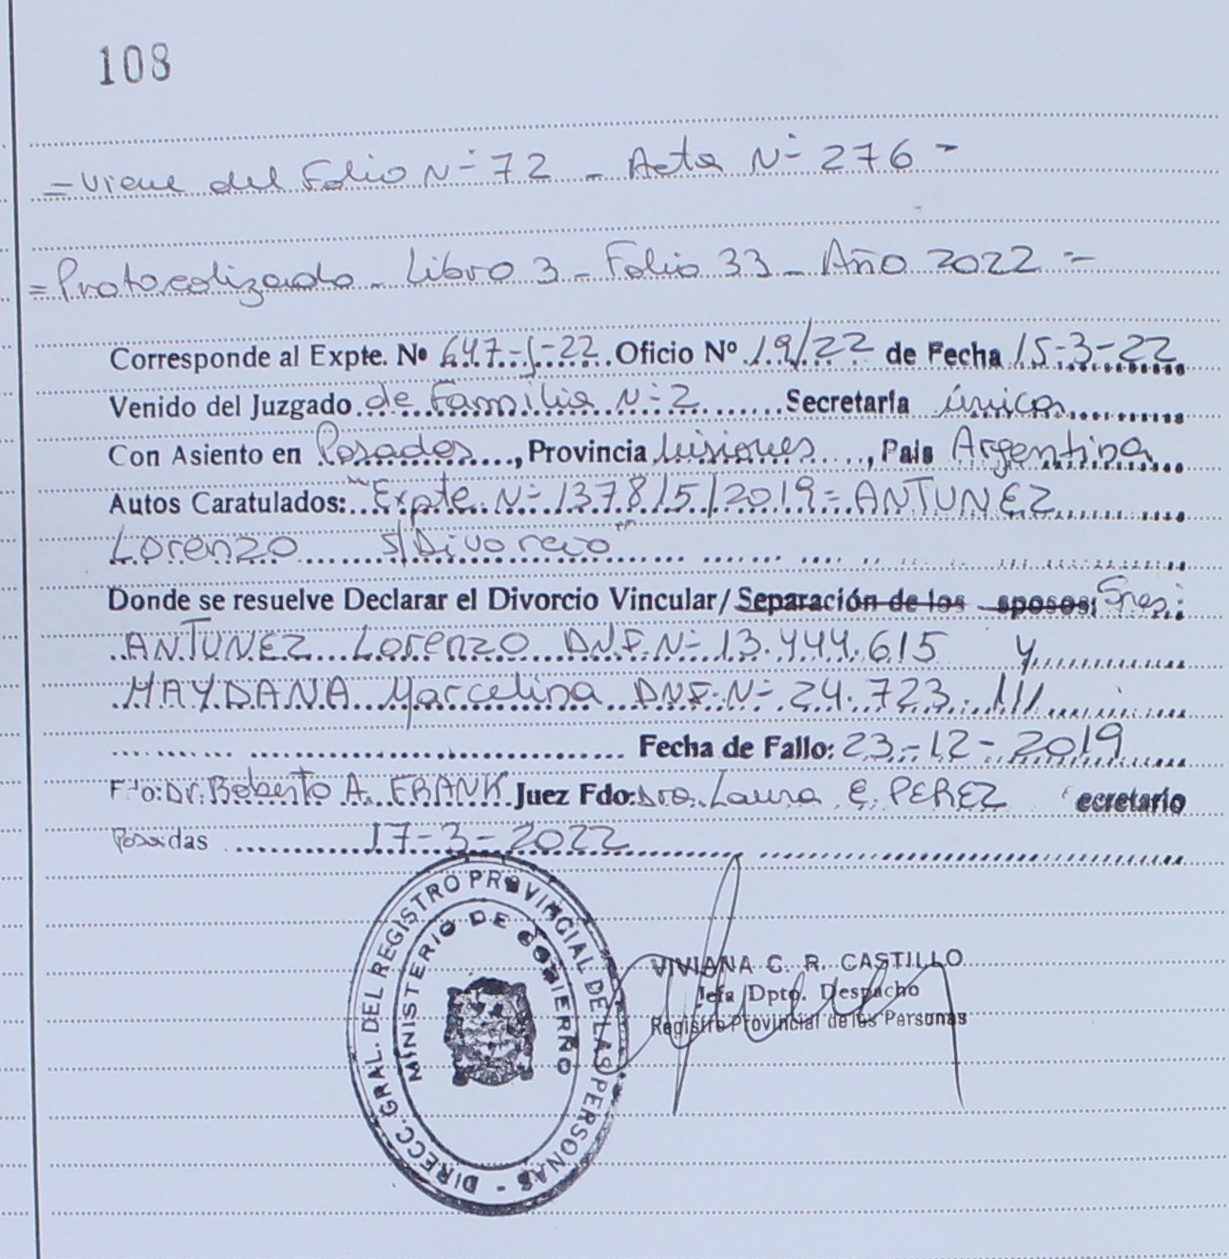 108
= Viene del Folio Nº 72 - Acta Nº 276 =
= Protocolizado - Libro 3 - Folio 33 - Año 2022 =
Corresponde al Expte. Nº 647-J-22 Oficio Nº 19/22 de Fecha 15-3-22
Venido del Juzgado de Familia Nº 2 Secretaría única
Con Asiento en Posadas, Provincia Misiones, País Argentina
Autos Caratulados: "Expte. Nº 137815/2019 = ANTUNEZ
Lorenzo s/Divorcio"
Donde se resuelve Declarar el Divorcio Vincular/ Separación de los sposos: Sres:
ANTUNEZ Lorenzo D.N.I. Nº 13.444.615 y
MAYDANA Marcelina DNI. Nº 24.723.111
Fecha de Fallo: 23-12-2019
Fdo: Dr. Roberto A. FRANK Juez Fdo: Dra. Laura E. PEREZ ecretario
Posadas 17-3-2022
DIRECC. GRAL. DEL REGISTRO PROVINCIAL DE LAS PERSONAS -
MINISTERIO DE GOBIERNO
VIVIANA C. R. CASTILLO
Jefa Dpto. Despacho
Registro Provincial de las Personas